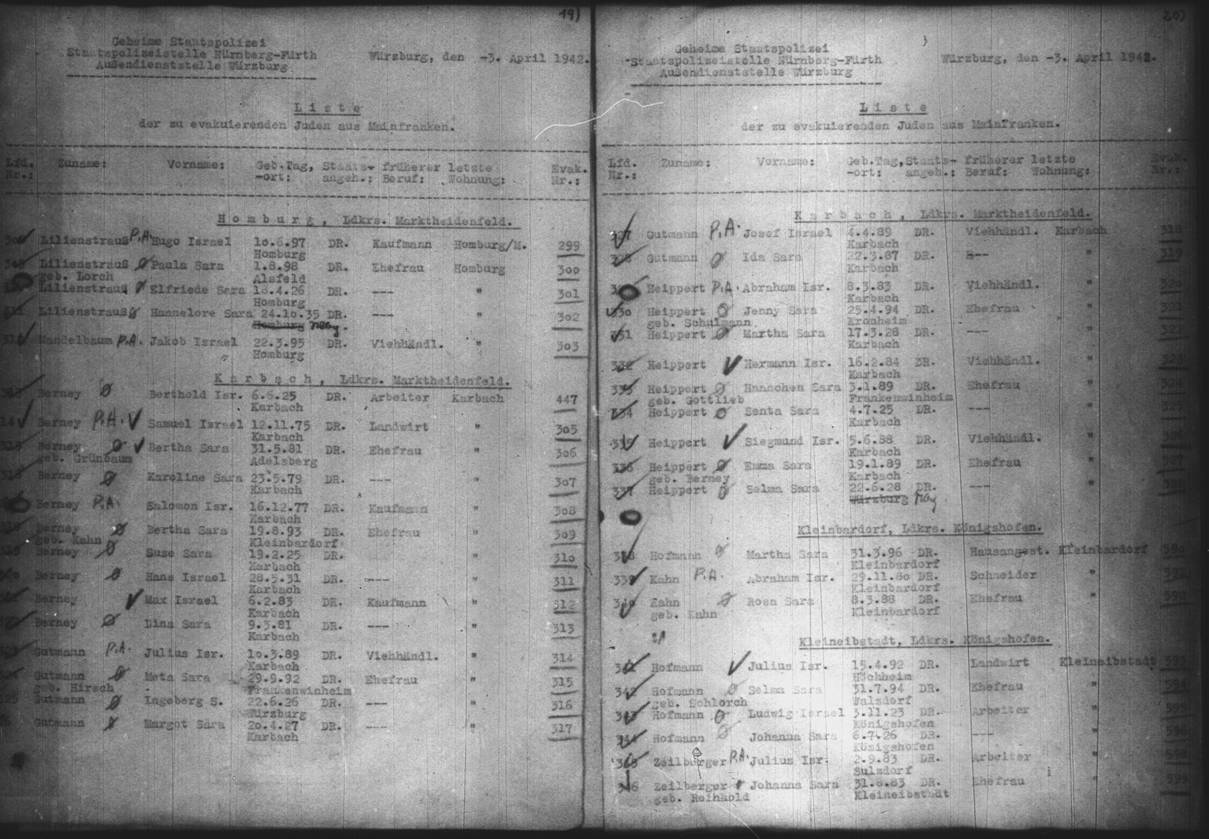 19)
Geheime Staatspolizei
Staatspolizeistelle Nürnberg-Fürth
Außendienststelle Würzburg
Würzburg, den -3. April 1942.
Liste
der zu evakuierenden Juden aus Mainfranken.
Lfd. Zuname: Vorname: Geb.Tag, Staats- früherer letzte Evak.
Nr.: -ort: angeh.: Beruf: Wohnung: Nr.:
Homburg, Ldkrs. Marktheidenfeld.
Lilienstrauß P.A. Hugo Israel 10.6.97 DR. Kaufmann Homburg/M. 299
Homburg
Lilienstrauß Ø Paula Sara 1.8.98 DR. Ehefrau Homburg 300
geb. Lorch Alsfeld
Lilienstrauß Ø Elfriede Sara 18.4.26 DR. --- " 301
Homburg
Lilienstrauß Ø Hannelore Sara 24.10.35 DR. " 302
Homburg
Mandelbaum P.A. Jakob Israel 22.3.95 DR. Viehhändl. " 303
Homburg
Karbach, Ldkrs. Marktheidenfeld.
Berney Ø Berthold Isr. 6.6.25 DR. Arbeiter Karbach 447
Karbach
Berney P.A. V Samuel Israel 12.11.75 DR. Landwirt " 305
Karbach
Berney Ø V Bertha Sara 31.5.81 DR. Ehefrau " 306
geb. Grünbaum Adelsberg
Berney Ø Karoline Sara 23.5.79 DR. --- " 307
Karbach
Berney P.A. Salomon Isr. 16.12.77 DR. Kaufmann " 308
Karbach
Berney Ø Bertha Sara 19.8.93 DR. Ehefrau " 309
geb. Kahn Kleinbardorf
Berney Ø Suse Sara 19.2.25 DR. " 310
Karbach
Berney Ø Hans Israel 28.5.31 DR. --- " 311
Karbach
Berney V Max Israel 6.2.83 DR. Kaufmann " 312
Karbach
Berney Ø Dina Sara 9.3.81 DR. --- " 313
Karbach
Gutmann P.A. Julius Isr. 10.3.89 DR. Viehhändl. " 314
Karbach
Gutmann Ø Meta Sara 29.9.92 DR. Ehefrau " 315
geb. Hirsch Frankenwinheim
Gutmann Ø Ingeberg S. 22.6.26 DR. --- " 316
Würzburg
Gutmann Ø Margot Sara 20.4.27 DR. --- " 317
Karbach
20)
Geheime Staatspolizei
Staatspolizeistelle Nürnberg-Fürth
Außendienststelle Würzburg
Würzburg, den -3. April 1942.
Liste
der zu evakuierenden Juden aus Mainfranken.
Lfd. Zuname: Vorname: Geb.Tag, Staats- früherer letzte Evak.
Nr.: -ort: angeh.: Beruf: Wohnung: Nr.:
Karbach, Ldkrs. Marktheidenfeld.
Gutmann P.A. Josef Israel 4.4.89 DR. Viehhändl. Karbach 318
Karbach
Gutmann Ø Ida Sara 22.3.87 DR. " 319
Karbach
Heippert P.A. Abraham Isr. 8.3.83 DR. Viehhändl. "
Karbach
330 Heippert Ø Jenny Sara 25.4.94 DR. Ehefrau "
geb. Schulmann Kronheim
331 Heippert Ø Martha Sara 17.3.28 DR. --- "
Karbach
332 Heippert V Hermann Isr. 16.2.84 DR. Viehhändl. "
Karbach
333 Heippert Ø Hannchen Sara 3.1.89 DR. Ehefrau "
geb. Gottlieb Frankenwinheim
334 Heippert Ø Senta Sara 4.7.25 DR. --- "
Karbach
335 Heippert V Siegmund Isr. 5.6.88 DR. Viehhändl. "
Karbach
336 Heippert Ø Emma Sara 19.1.89 DR. Ehefrau "
geb. Berney Karbach
337 Heippert Ø Selma Sara 22.6.28 DR. --- "
Würzburg
Kleinbardorf, Ldkrs. Königshofen.
338 Hofmann Ø Martha Sara 31.3.96 DR. Hausangest. Kleinbardorf
Kleinbardorf
339 Kahn P.A. Abraham Isr. 29.11.80 DR. Schneider "
Kleinbardorf
340 Kahn Ø Rosa Sara 8.3.88 DR. Ehefrau "
geb. Kahn Kleinbardorf
Kleineibstadt, Ldkrs. Königshofen.
341 Hofmann V Julius Isr. 15.4.92 DR. Landwirt Kleineibstadt
Höchheim
342 Hofmann Ø Selma Sara 31.7.94 DR. Ehefrau "
geb. Schlorch Walsdorf
343 Hofmann Ø Ludwig Israel 3.11.23 DR. Arbeiter "
Königshofen
344 Hofmann Ø Johanna Sara 6.7.26 DR. --- "
Königshofen
345 Zeilberger P.A. Julius Isr. 2.9.83 DR. Arbeiter "
Sulzdorf
346 Zeilberger Johanna Sara 31.8.83 DR. Ehefrau "
geb. Reinhold Kleineibstadt